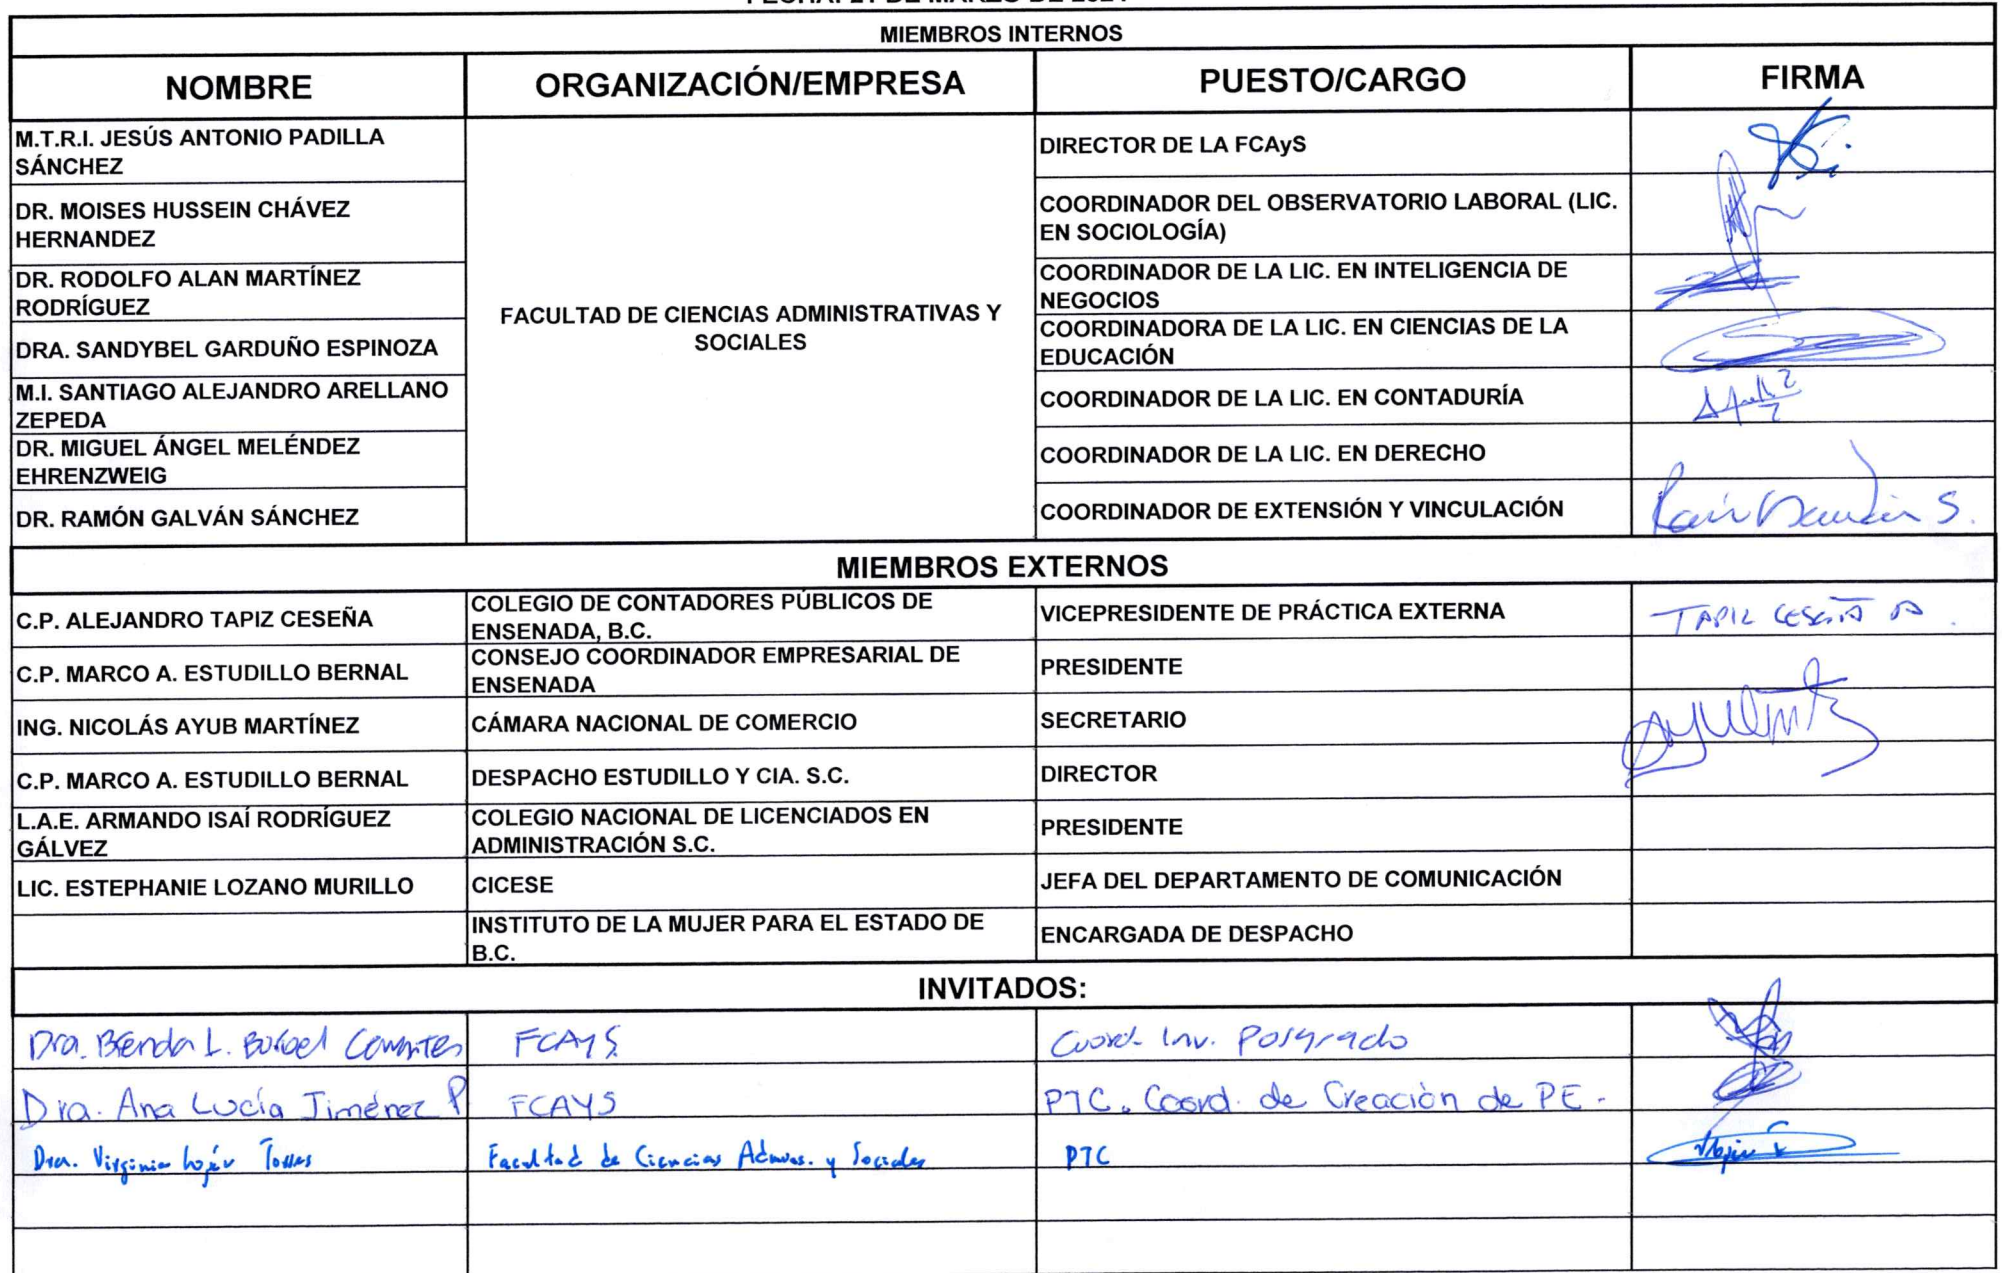 MIEMBROS INTERNOS
NOMBRE ORGANIZACIÓN/EMPRESA PUESTO/CARGO FIRMA
M.T.R.I. JESÚS ANTONIO PADILLA
SÁNCHEZ
DIRECTOR DE LA FCAyS
DR. MOISES HUSSEIN CHÁVEZ
HERNANDEZ
COORDINADOR DEL OBSERVATORIO LABORAL (LIC.
EN SOCIOLOGÍA)
DR. RODOLFO ALAN MARTÍNEZ
RODRÍGUEZ
COORDINADOR DE LA LIC. EN INTELIGENCIA DE
NEGOCIOS
FACULTAD DE CIENCIAS ADMINISTRATIVAS Y
SOCIALES
DRA. SANDYBEL GARDUÑO ESPINOZA
COORDINADORA DE LA LIC. EN CIENCIAS DE LA
EDUCACIÓN
M.I. SANTIAGO ALEJANDRO ARELLANO
ZEPEDA
COORDINADOR DE LA LIC. EN CONTADURÍA
DR. MIGUEL ÁNGEL MELÉNDEZ
EHRENZWEIG
COORDINADOR DE LA LIC. EN DERECHO
DR. RAMÓN GALVÁN SÁNCHEZ
COORDINADOR DE EXTENSIÓN Y VINCULACIÓN
MIEMBROS EXTERNOS
C.P. ALEJANDRO TAPIZ CESEÑA
COLEGIO DE CONTADORES PÚBLICOS DE
ENSENADA, B.C.
VICEPRESIDENTE DE PRÁCTICA EXTERNA
TAPIZ CESEÑA A
C.P. MARCO A. ESTUDILLO BERNAL
CONSEJO COORDINADOR EMPRESARIAL DE
ENSENADA
PRESIDENTE
ING. NICOLÁS AYUB MARTÍNEZ
CÁMARA NACIONAL DE COMERCIO
SECRETARIO
C.P. MARCO A. ESTUDILLO BERNAL
DESPACHO ESTUDILLO Y CIA. S.C.
DIRECTOR
L.A.E. ARMANDO ISAÍ RODRÍGUEZ
GÁLVEZ
COLEGIO NACIONAL DE LICENCIADOS EN
ADMINISTRACIÓN S.C.
PRESIDENTE
LIC. ESTEPHANIE LOZANO MURILLO
CICESE
JEFA DEL DEPARTAMENTO DE COMUNICACIÓN
INSTITUTO DE LA MUJER PARA EL ESTADO DE
B.C.
ENCARGADA DE DESPACHO
INVITADOS:
Dra. Brenda L. FCAYS Coord. Inv. Posgrado
Dra. Ana Lucía Jiménez P FCAYS PTC. Coord. de Creación de PE.
Dra. Virginia Torres Facultad de Ciencias Admvas. y Sociales PTC